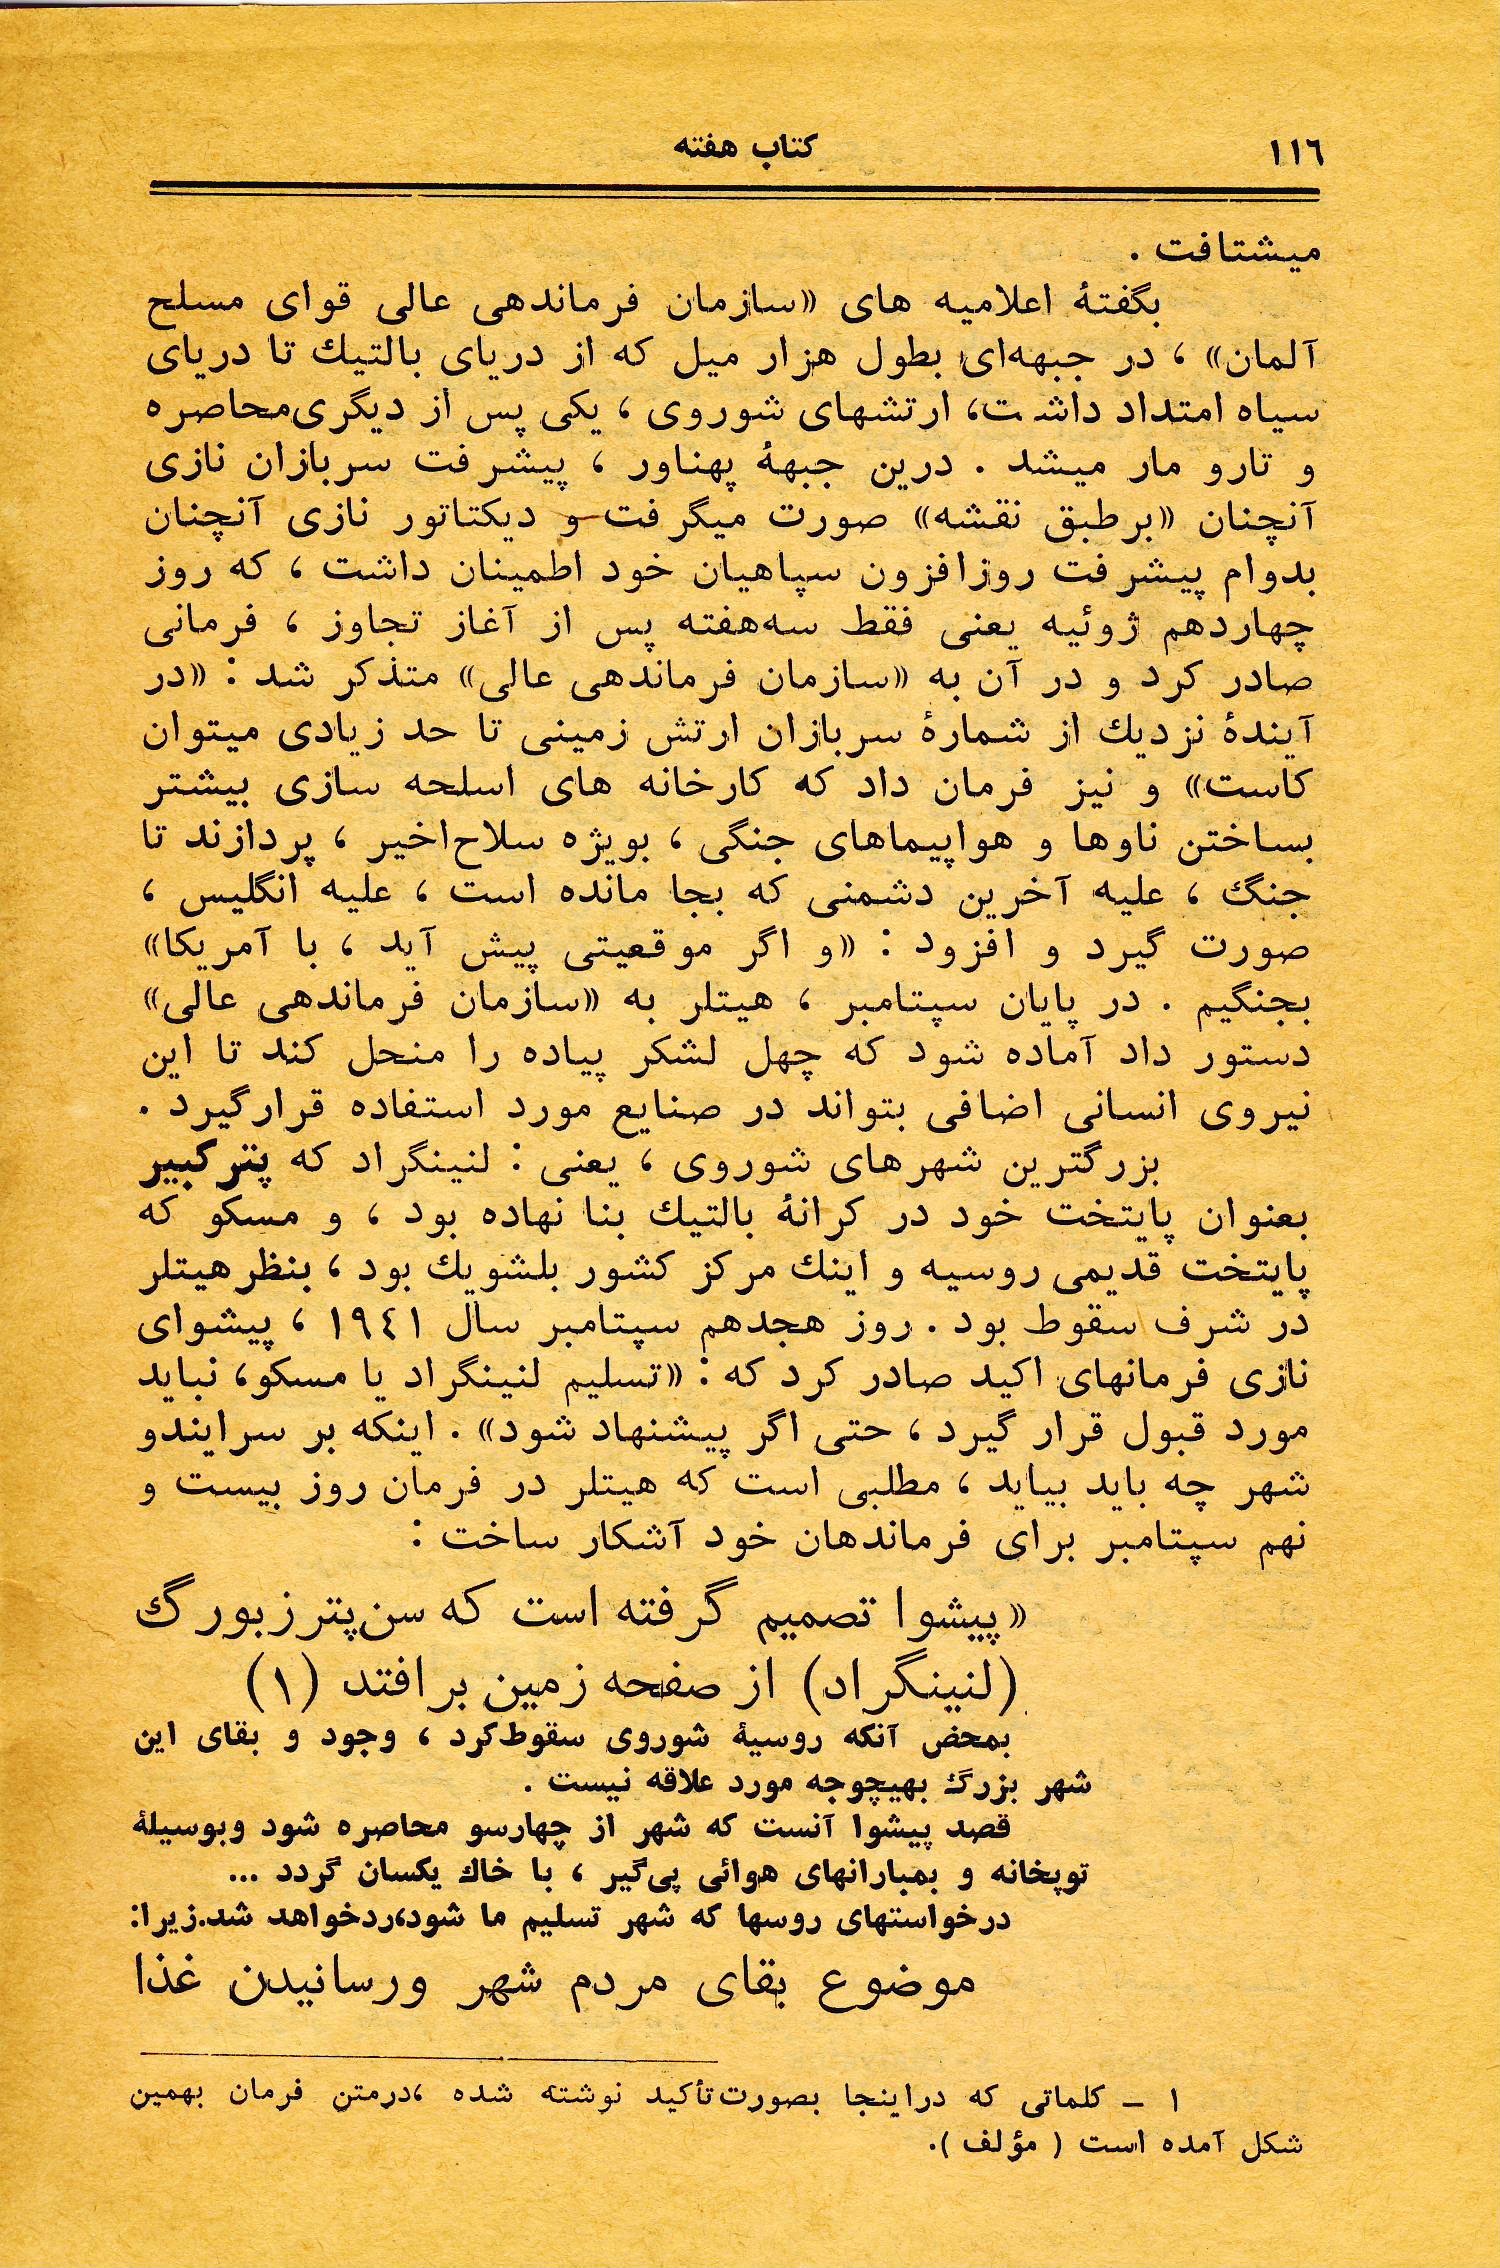 ۱۱۶
کتاب هفته
میشتافت .
بگفتهٔ اعلامیه های «سازمان فرماندهی عالی قوای مسلح
آلمان» ، در جبهه‌ای بطول هزار میل که از دریای بالتیك تا دریای
سیاه امتداد داشت، ارتشهای شوروی ، یکی پس از دیگری محاصره
و تارو مار میشد . درین جبههٔ پهناور ، پیشرفت سربازان نازی
آنچنان «برطبق نقشه» صورت میگرفت و دیکتاتور نازی آنچنان
بدوام پیشرفت روزافزون سپاهیان خود اطمینان داشت ، که روز
چهاردهم ژوئیه یعنی فقط سه‌هفته پس از آغاز تجاوز ، فرمانی
صادر کرد و در آن به «سازمان فرماندهی عالی» متذکر شد : «در
آیندهٔ نزدیك از شمارهٔ سربازان ارتش زمینی تا حد زیادی میتوان
کاست» و نیز فرمان داد که کارخانه های اسلحه سازی بیشتر
بساختن ناوها و هواپیماهای جنگی ، بویژه سلاح‌اخیر ، پردازند تا
جنگ ، علیه آخرین دشمنی که بجا مانده است ، علیه انگلیس ،
صورت گیرد و افزود : «و اگر موقعیتی پیش آید ، با آمریکا»
بجنگیم . در پایان سپتامبر ، هیتلر به «سازمان فرماندهی عالی»
دستور داد آماده شود که چهل لشکر پیاده را منحل کند تا این
نیروی انسانی اضافی بتواند در صنایع مورد استفاده قرارگیرد .
بزرگترین شهرهای شوروی ، یعنی : لنینگراد که پتر کبیر
بعنوان پایتخت خود در کرانهٔ بالتیك بنا نهاده بود ، و مسکو که
پایتخت قدیمی روسیه و اینك مرکز کشور بلشویك بود ، بنظر هیتلر
در شرف سقوط بود . روز هجدهم سپتامبر سال ۱۹٤۱ ، پیشوای
نازی فرمانهای اکید صادر کرد که : «تسلیم لنینگراد یا مسکو، نباید
مورد قبول قرار گیرد ، حتی اگر پیشنهاد شود» . اینکه بر سرایندو
شهر چه باید بیاید ، مطلبی است که هیتلر در فرمان روز بیست و
نهم سپتامبر برای فرماندهان خود آشکار ساخت :
«پیشوا تصمیم گرفته است که سن‌پترزبورگ
(لنینگراد) از صفحه زمین برافتد (۱)
بمحض آنکه روسیهٔ شوروی سقوط‌کرد ، وجود و بقای این
شهر بزرگ بهیچوجه مورد علاقه نیست .
قصد پیشوا آنست که شهر از چهارسو محاصره شود وبوسیلهٔ
توپخانه و بمبارانهای هوائی پی‌گیر ، با خاك یکسان گردد ...
درخواستهای روسها که شهر تسلیم ما شود،ردخواهد شد.زیرا:
موضوع بقای مردم شهر ورسانیدن غذا
۱ – کلماتی که دراینجا بصورت‌تأکید نوشته شده ،درمتن فرمان بهمین
شکل آمده است ( مؤلف ).